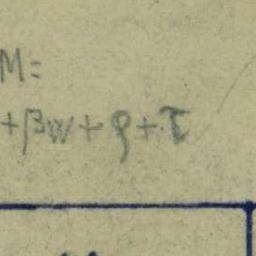 M=
+βw+ρ+τ